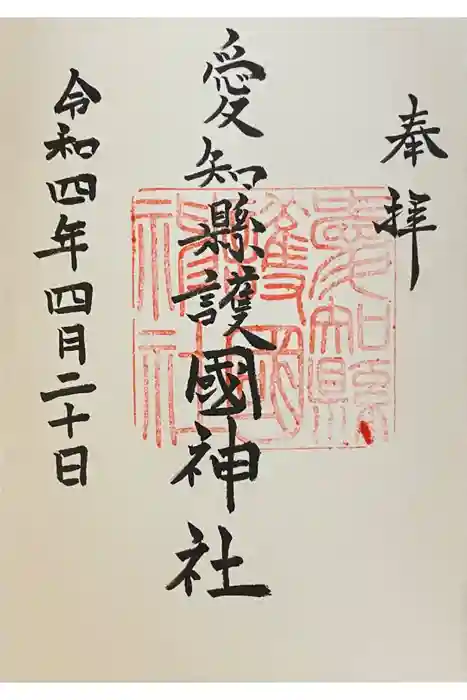 奉拝
愛知縣護國神社
愛知縣
護國
神社
令和四年四月二十日